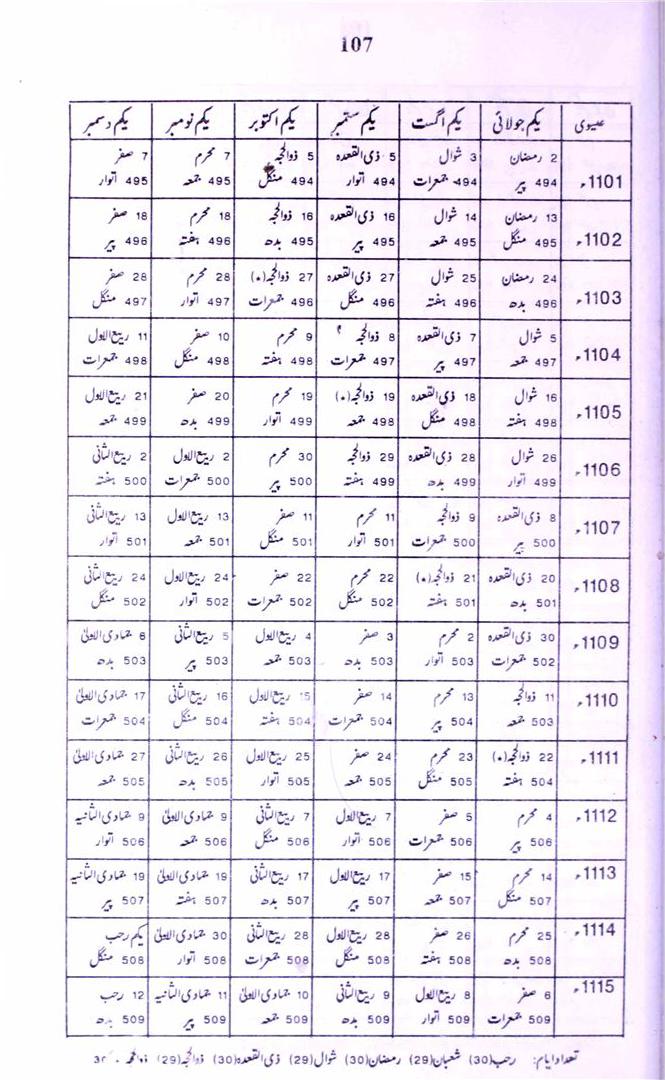 107
عیسوی یکم جولائی یکم اگست یکم ستمبر یکم اکتوبر یکم نومبر یکم دسمبر
1101ء 2 رمضان 3 شوال 5 ذی القعدہ 5 ذوالحجہ 7 محرم 7 صفر
494 پیر 494 جمعرات 494 اتوار 494 منگل 495 جمعہ 495 اتوار
1102ء 13 رمضان 14 شوال 16 ذی القعدہ 16 ذوالحجہ 18 محرم 18 صفر
495 منگل 495 جمعہ 495 پیر 495 بدھ 496 ہفتہ 496 پیر
1103ء 24 رمضان 25 شوال 27 ذی القعدہ 27 ذوالحجہ(٭) 28 محرم 28 صفر
496 بدھ 496 ہفتہ 496 منگل 496 جمعرات 497 اتوار 497 منگل
1104ء 5 شوال 7 ذی القعدہ 8 ذوالحجہ 9 محرم 10 صفر 11 ربیع الاول
497 جمعہ 497 پیر 497 جمعرات 498 ہفتہ 498 منگل 498 جمعرات
1105ء 16 شوال 18 ذی القعدہ 19 ذوالحجہ(٭) 19 محرم 20 صفر 21 ربیع الاول
498 ہفتہ 498 منگل 498 جمعہ 499 اتوار 499 بدھ 499 جمعہ
1106ء 26 شوال 28 ذی القعدہ 29 ذوالحجہ 30 محرم 2 ربیع الاول 2 ربیع الثانی
499 اتوار 499 بدھ 499 ہفتہ 500 پیر 500 جمعرات 500 ہفتہ
1107ء 8 ذی القعدہ 9 ذوالحجہ 11 محرم 11 صفر 13 ربیع الاول 13 ربیع الثانی
500 پیر 500 جمعرات 501 اتوار 501 منگل 501 جمعہ 501 اتوار
1108ء 20 ذی القعدہ 21 ذوالحجہ(٭) 22 محرم 22 صفر 24 ربیع الاول 24 ربیع الثانی
501 بدھ 501 ہفتہ 502 منگل 502 جمعرات 502 اتوار 502 منگل
1109ء 30 ذی القعدہ 2 محرم 3 صفر 4 ربیع الاول 5 ربیع الثانی 6 جمادی الاولیٰ
502 جمعرات 503 اتوار 503 بدھ 503 جمعہ 503 پیر 503 بدھ
1110ء 11 ذوالحجہ 13 محرم 14 صفر 15 ربیع الاول 16 ربیع الثانی 17 جمادی الاولیٰ
503 جمعہ 504 پیر 504 جمعرات 504 ہفتہ 504 منگل 504 جمعرات
1111ء 22 ذوالحجہ(٭) 23 محرم 24 صفر 25 ربیع الاول 26 ربیع الثانی 27 جمادی الاولیٰ
504 ہفتہ 505 منگل 505 جمعہ 505 اتوار 505 بدھ 505 جمعہ
1112ء 4 محرم 5 صفر 7 ربیع الاول 7 ربیع الثانی 9 جمادی الاولیٰ 9 جمادی الثانیہ
506 پیر 506 جمعرات 506 اتوار 506 منگل 506 جمعہ 506 اتوار
1113ء 14 محرم 15 صفر 17 ربیع الاول 17 ربیع الثانی 19 جمادی الاولیٰ 19 جمادی الثانیہ
507 منگل 507 جمعہ 507 پیر 507 بدھ 507 ہفتہ 507 پیر
1114ء 25 محرم 26 صفر 28 ربیع الاول 28 ربیع الثانی 30 جمادی الاولیٰ یکم رجب
508 بدھ 508 ہفتہ 508 منگل 508 جمعرات 508 اتوار 508 منگل
1115ء 6 صفر 8 ربیع الاول 9 ربیع الثانی 10 جمادی الاولیٰ 11 جمادی الثانیہ 12 رجب
509 جمعرات 509 اتوار 509 بدھ 509 جمعہ 509 پیر 509 بدھ
تعداد ایام: رجب(30) شعبان(29) رمضان(30) شوال(29) ذی القعدہ(30) ذوالحجہ(29) ذوالحجہ